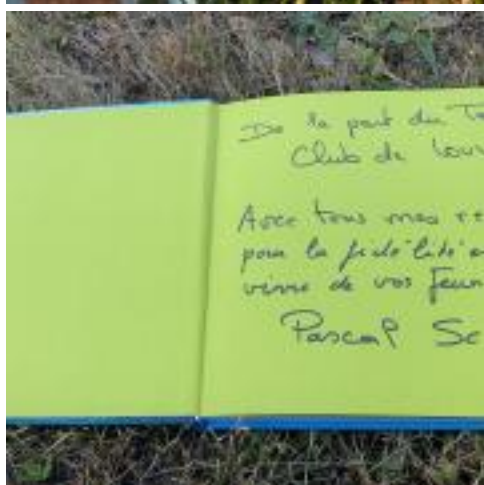 De la part du Te
Club de Lou
Avec tous mes re
pour la fidélité
de vos jeun
Pascal Sc